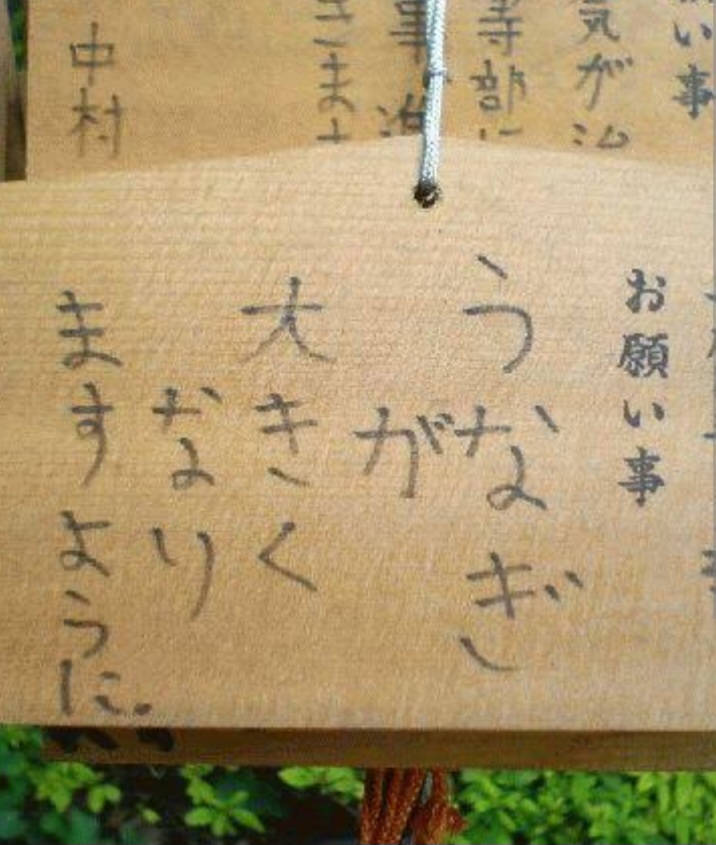 お願い事
うなぎ
が
大きく
なり
ますように。
い事
気が治
寺部に
事
きま
中村